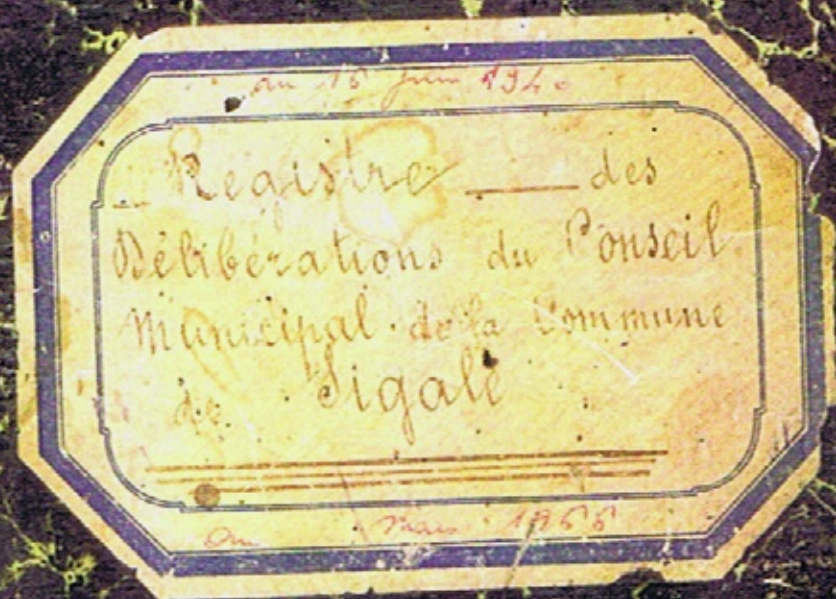 du 16 juin 1940
Registre — des
Délibérations du Conseil
Municipal de la Commune
de Sigale
au mars 1966